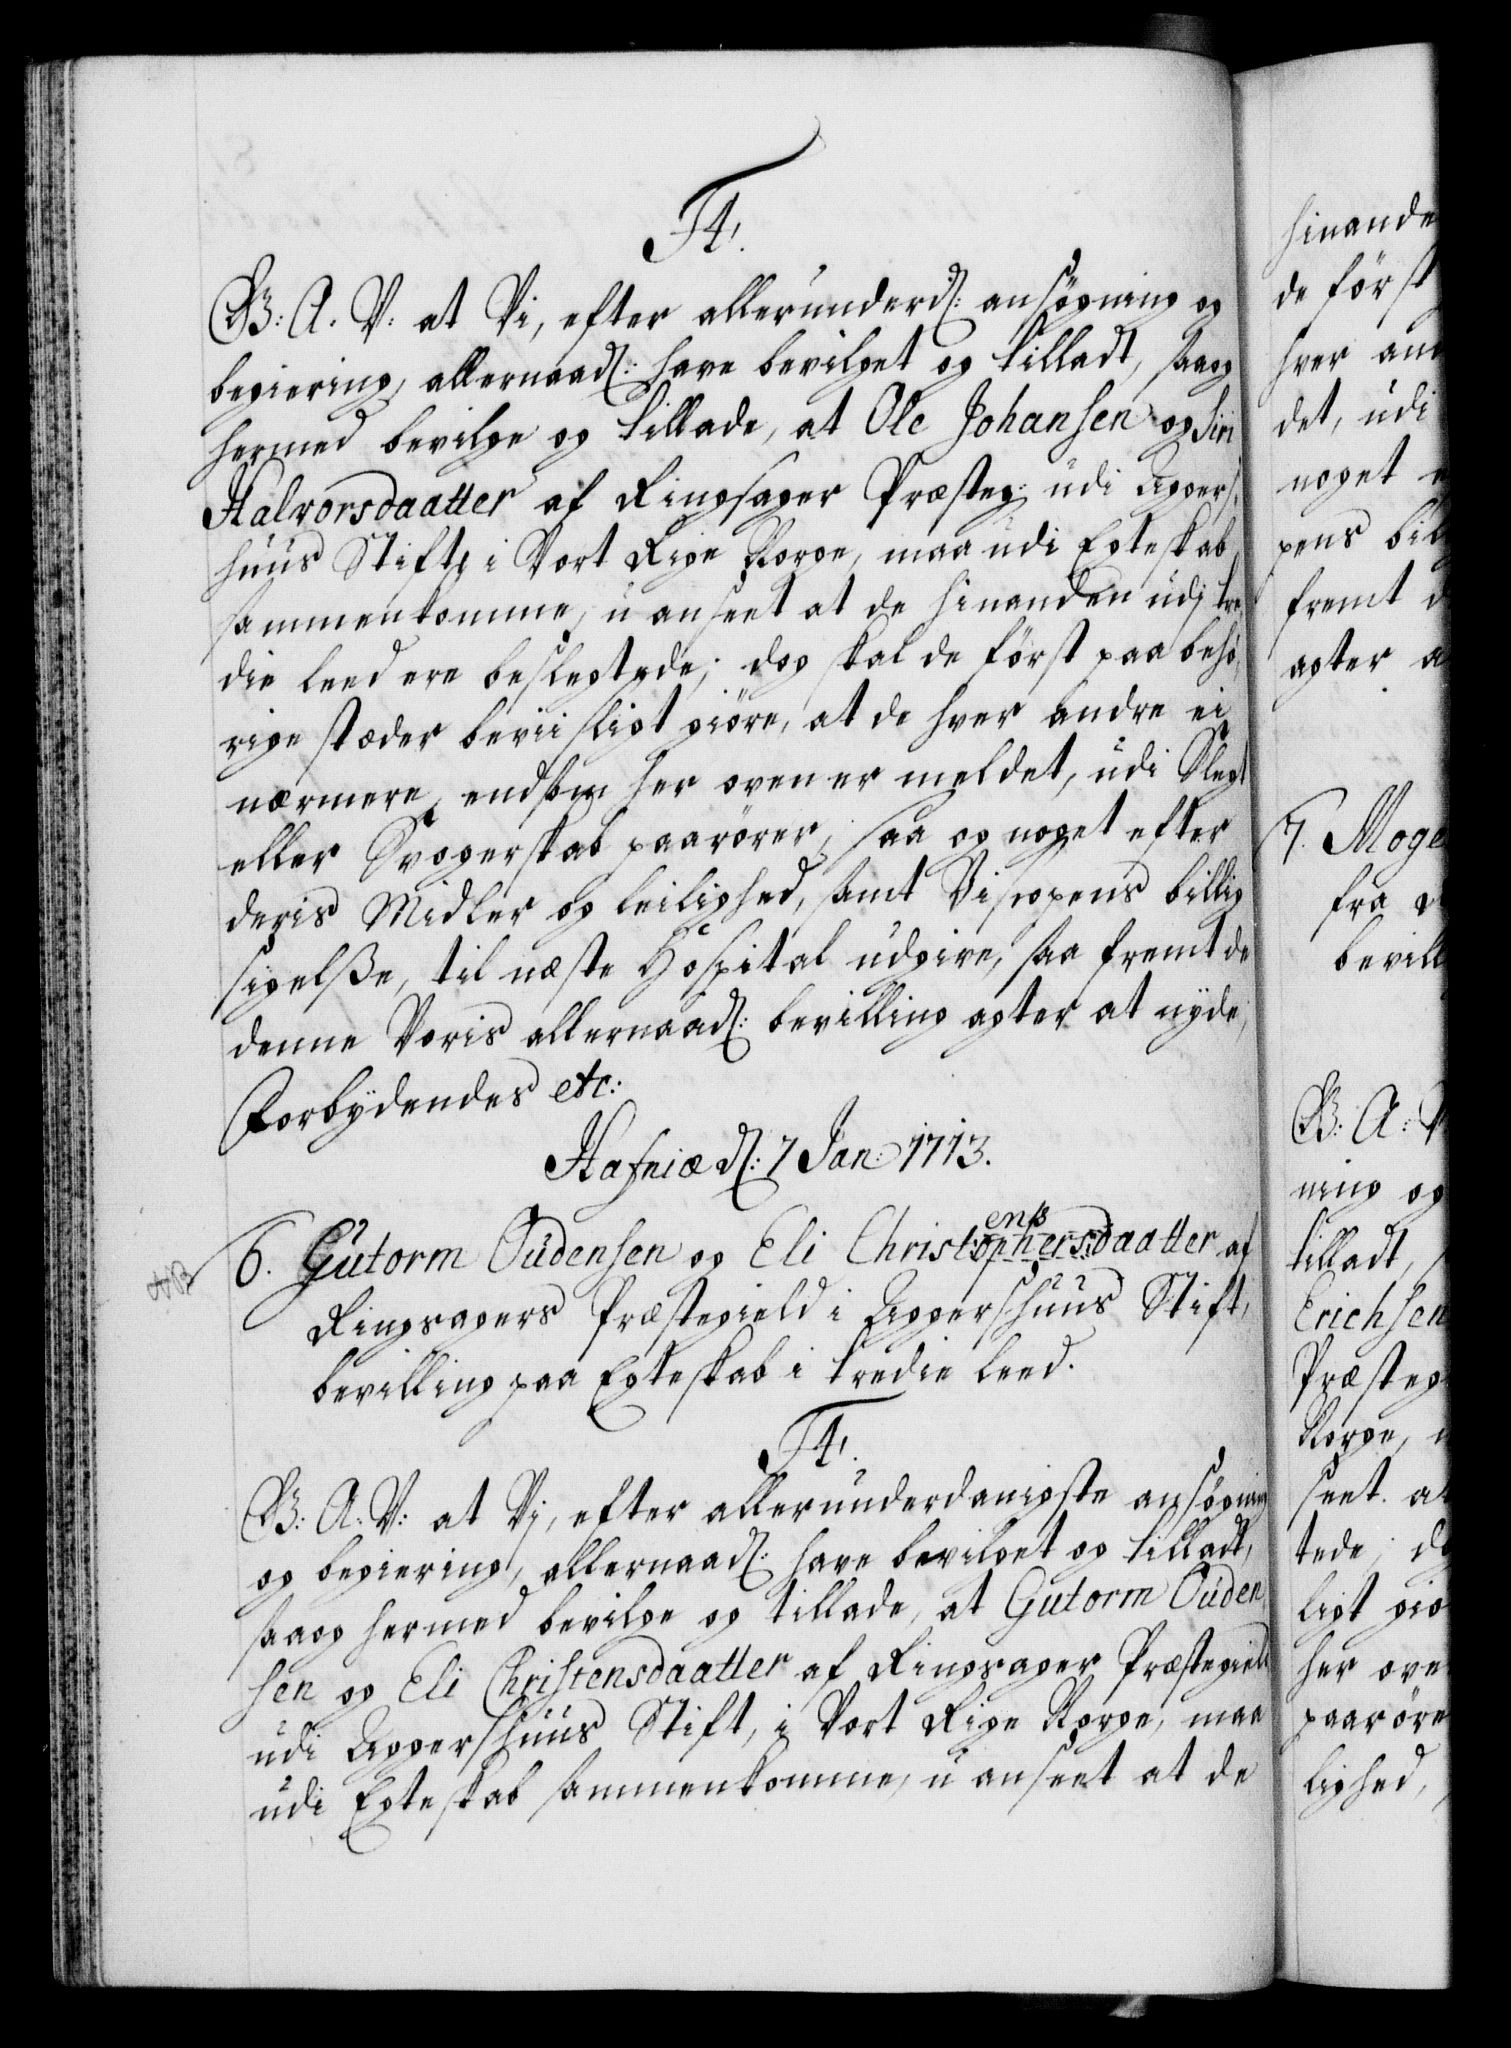 F4.
G: A. V: at Vi, efter allerunderd: ansøgning og
begiering, allernaad: have bevilget og tilladt, saaog
hermed bevilge og tillade, at Ole Johansen og Siri
Halvorsdaatter af Ringsager Præsteg: udi Aggers-
huus Stift, i Vort Rige Norge, maa udi Egteskab
sammenkomme, uanseet at de hinanden udj tre-
die leed ere beslegtede; dog skal de först paa behö-
rige stæder beviisligt giöre, at de hver andre ei
nærmere, end som her oven er meldet, udi Slegt
eller Svogerskab paarörer, saa og noget efter
deris Midler og leilighed, samt Biscopens billig
sigelße, til næste Hospital udgive, saa fremt de
denne Voris allernaad: bevilling agter at nyde,
Forbydendes etc:
Hafniæ d: 7 Jan: 1713.
ens
NB 6. Gutorm Oudensen og Eli Christophersdaatter af
Ringsagers Præstegield i Aggershuus Stift,
bevilling paa Egteskab i tredie leed.
F4.
G: A: V: at Vj, efter allerunderdanigste ansøgning
og begiering, allernaad: have bevilget og tilladt,
saaog hermed bevilge og tillade, at Gutorm Ouden
sen og Eli Christensdaatter af Ringsager Præstegield
udi Aggershuus Stift, i Vort Rige Norge, maa
udi Egteskab sammenkomme, uanseet at de
hinande
de först
hver and
det, udi
noget e
pens bil
fremt d
agter a
7. Moge
fra
bevill
G: A: V
ning og
tilladt,
Erichsen
Præsteg
Norge,
seet at
tede, do
ligt giö
her ove
paaröre
lighed,